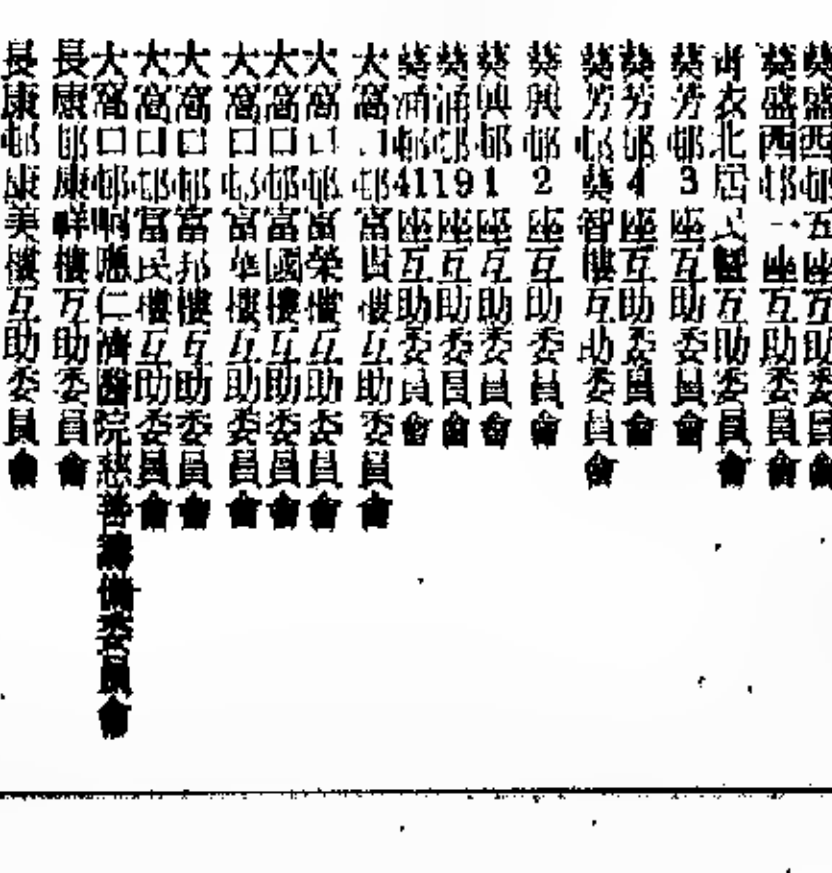 葵盛西邨五座互助委員會
葵盛西邨一座互助委員會
青衣北居民互助委員會
葵芳邨3座互助委員會
葵芳邨4座互助委員會
葵芳邨葵智樓互助委員會
葵興邨2座互助委員會
葵興邨1座互助委員會
葵涌邨19座互助委員會
葵涌邨41座互助委員會
大窩口邨富貴樓互助委員會
大窩口邨富榮樓互助委員會
大窩口邨富國樓互助委員會
大窩口邨富華樓互助委員會
大窩口邨富邦樓互助委員會
大窩口邨富民樓互助委員會
大窩口邨響應仁濟醫院慈善籌備委員會
長康邨康祥樓互助委員會
長康邨康美樓互助委員會